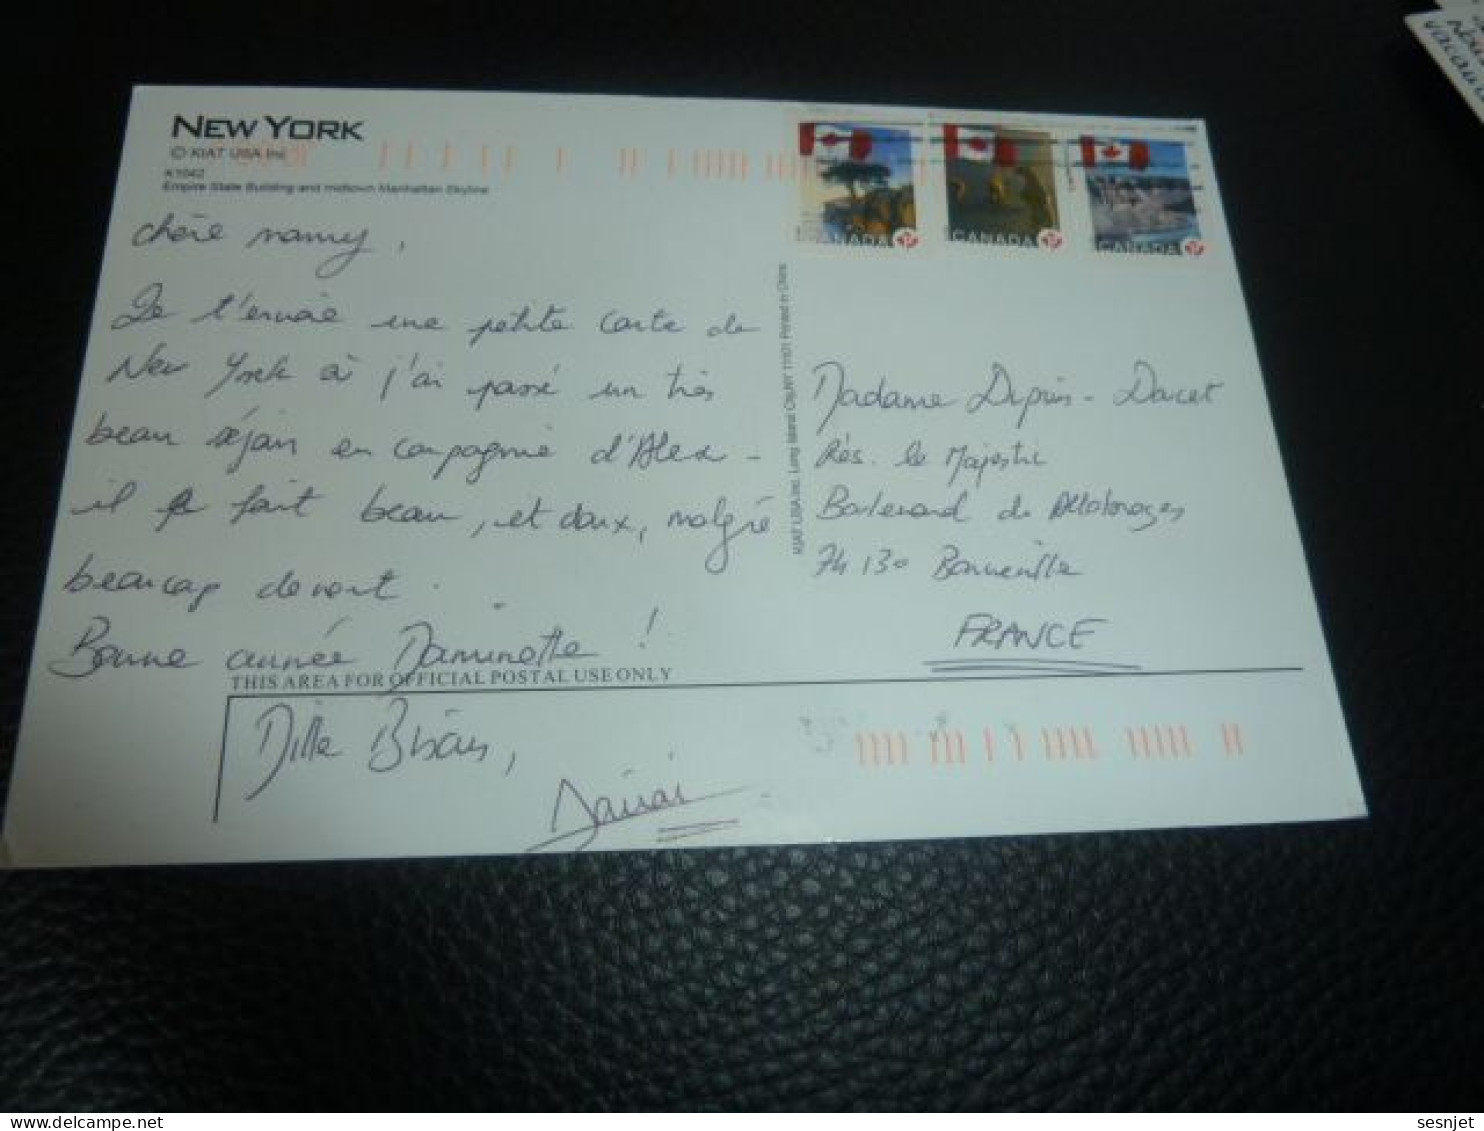 NEW YORK
© KIAT USA Inc
K1042
Empire State Building and midtown Manhattan Skyline
chère mamy,
Je t'envoie une petite carte de
New York où j'ai passé un très
beau séjour en compagnie d'Alex -
il fait beau, et doux, malgré
beaucoup de vent.
Bonne année Daminette !
THIS AREA FOR OFFICIAL POSTAL USE ONLY
Mille Bisous,
CANADA P
CANADA P
CANADA P
KIAT USA Inc. Long Island City, NY 11101 Printed in China
Madame
Rés. le Majestic
Boulevard
74130 Bonneville
FRANCE
sesnjet